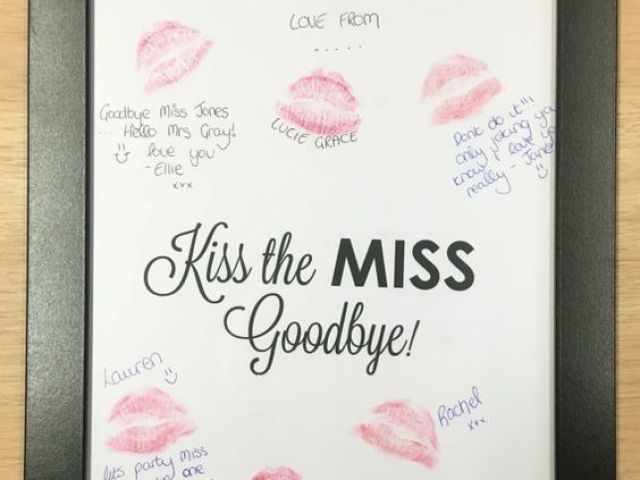 LOVE FROM
.....
Goodbye Miss Jones
... Hello Mrs Gray!
love you
- Ellie
xxx
LUCIE GRACE
Dont do it!!!
only joking you
know I love you
really - Jane
Kiss the MISS
Goodbye!
Lauren
lets party miss
one
Rachel
xxx